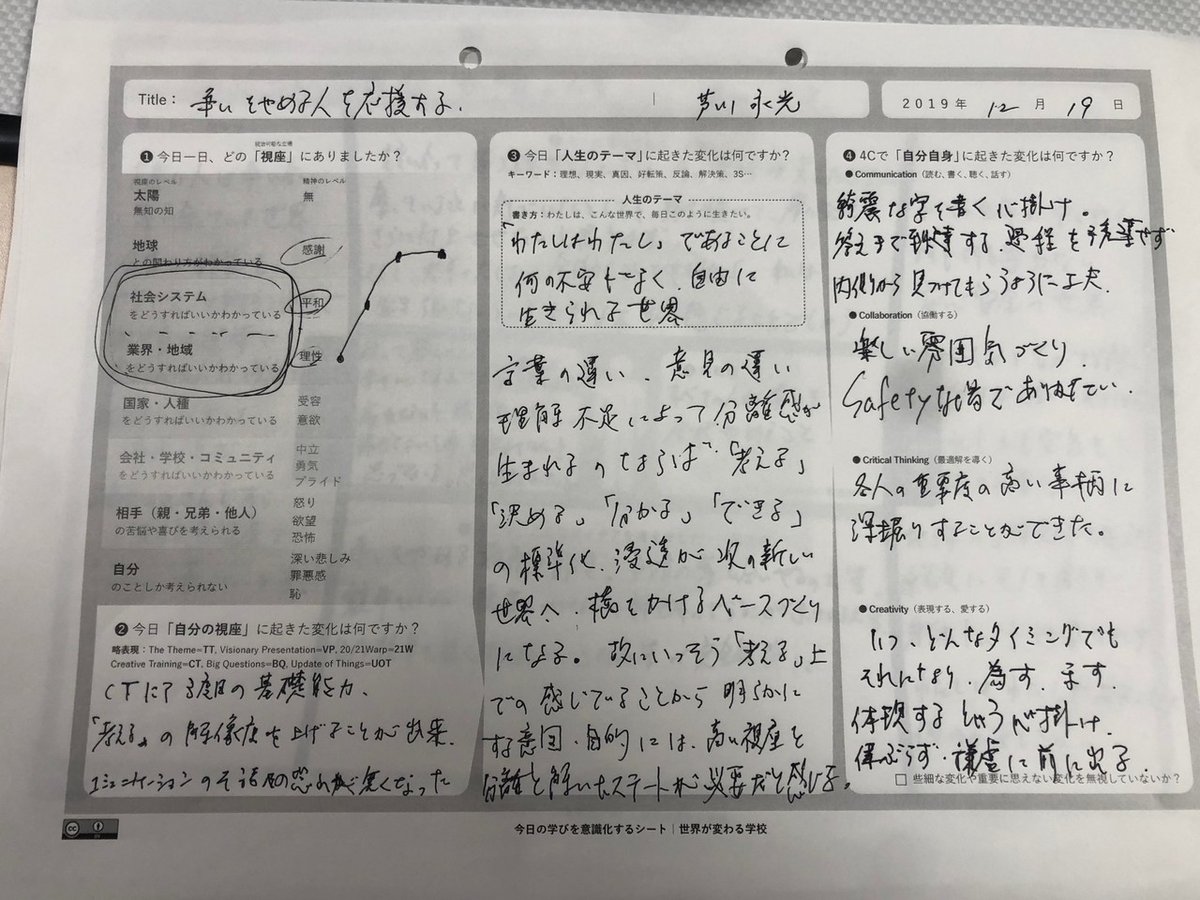 Title： 争いをやめる人を応援する。
芦川 永光
2019年 12月 19日
❶ 今日一日、どの「視座」にありましたか？
視座のレベル 精神のレベル
太陽 無
無知の知
地球 感謝
との関わり方がわかっている
社会システム 平和
をどうすればいいかわかっている
業界・地域 理性
をどうすればいいかわかっている
国家・人種 受容
をどうすればいいかわかっている 意欲
会社・学校・コミュニティ 中立
をどうすればいいかわかっている 勇気
プライド
相手（親・兄弟・他人） 怒り
の苦悩や喜びを考えられる 欲望
恐怖
自分 深い悲しみ
のことしか考えられない 罪悪感
恥
❷ 今日「自分の視座」に起きた変化は何ですか？
略表現：The Theme=TT, Visionary Presentation=VP, 20/21Warp=21W
Creative Training=CT, Big Questions=BQ, Update of Things=UOT
CTにて3度目の基礎能力、
「考える」の解像度を上げることが出来、
コミュニケーションの恐れが無くなった
❸ 今日「人生のテーマ」に起きた変化は何ですか？
キーワード：理想、現実、真因、好転策、反論、解決策、3S…
人生のテーマ
書き方：わたしは、こんな世界で、毎日このように生きたい。
「わたしはわたし」であることに
何の不安もなく、自由に
生きられる世界
言葉の違い、意見の違い
理解不足によって分離感が
生まれるのならば「考える」
「決める」「分かる」「できる」
の標準化、浸透が次の新しい
世界へ、橋をかけるベースづくり
になる。故にいっそう「考える」上
での感じていることから明らかに
する意図・目的には、高い視座と
分離を解いたステートが必要だと感じる。
❹ 4Cで「自分自身」に起きた変化は何ですか？
● Communication（読む、書く、聴く、話す）
綺麗な字を書く心掛け。
答えまで到達する過程を予見せず
内側から見つけてもらうように工夫。
● Collaboration（協働する）
楽しい雰囲気づくり
Safetyな場でありたい。
● Critical Thinking（最適解を導く）
各人の重要度の高い事柄に
深掘りすることができた。
● Creativity（表現する、愛する）
いつ、どんなタイミングでも
それになり、為す、ます、
体現するという心掛け
偉ぶらず、謙虚に前に出る
□ 些細な変化や重要に思えない変化を無視していないか？
今日の学びを意識化するシート｜世界が変わる学校